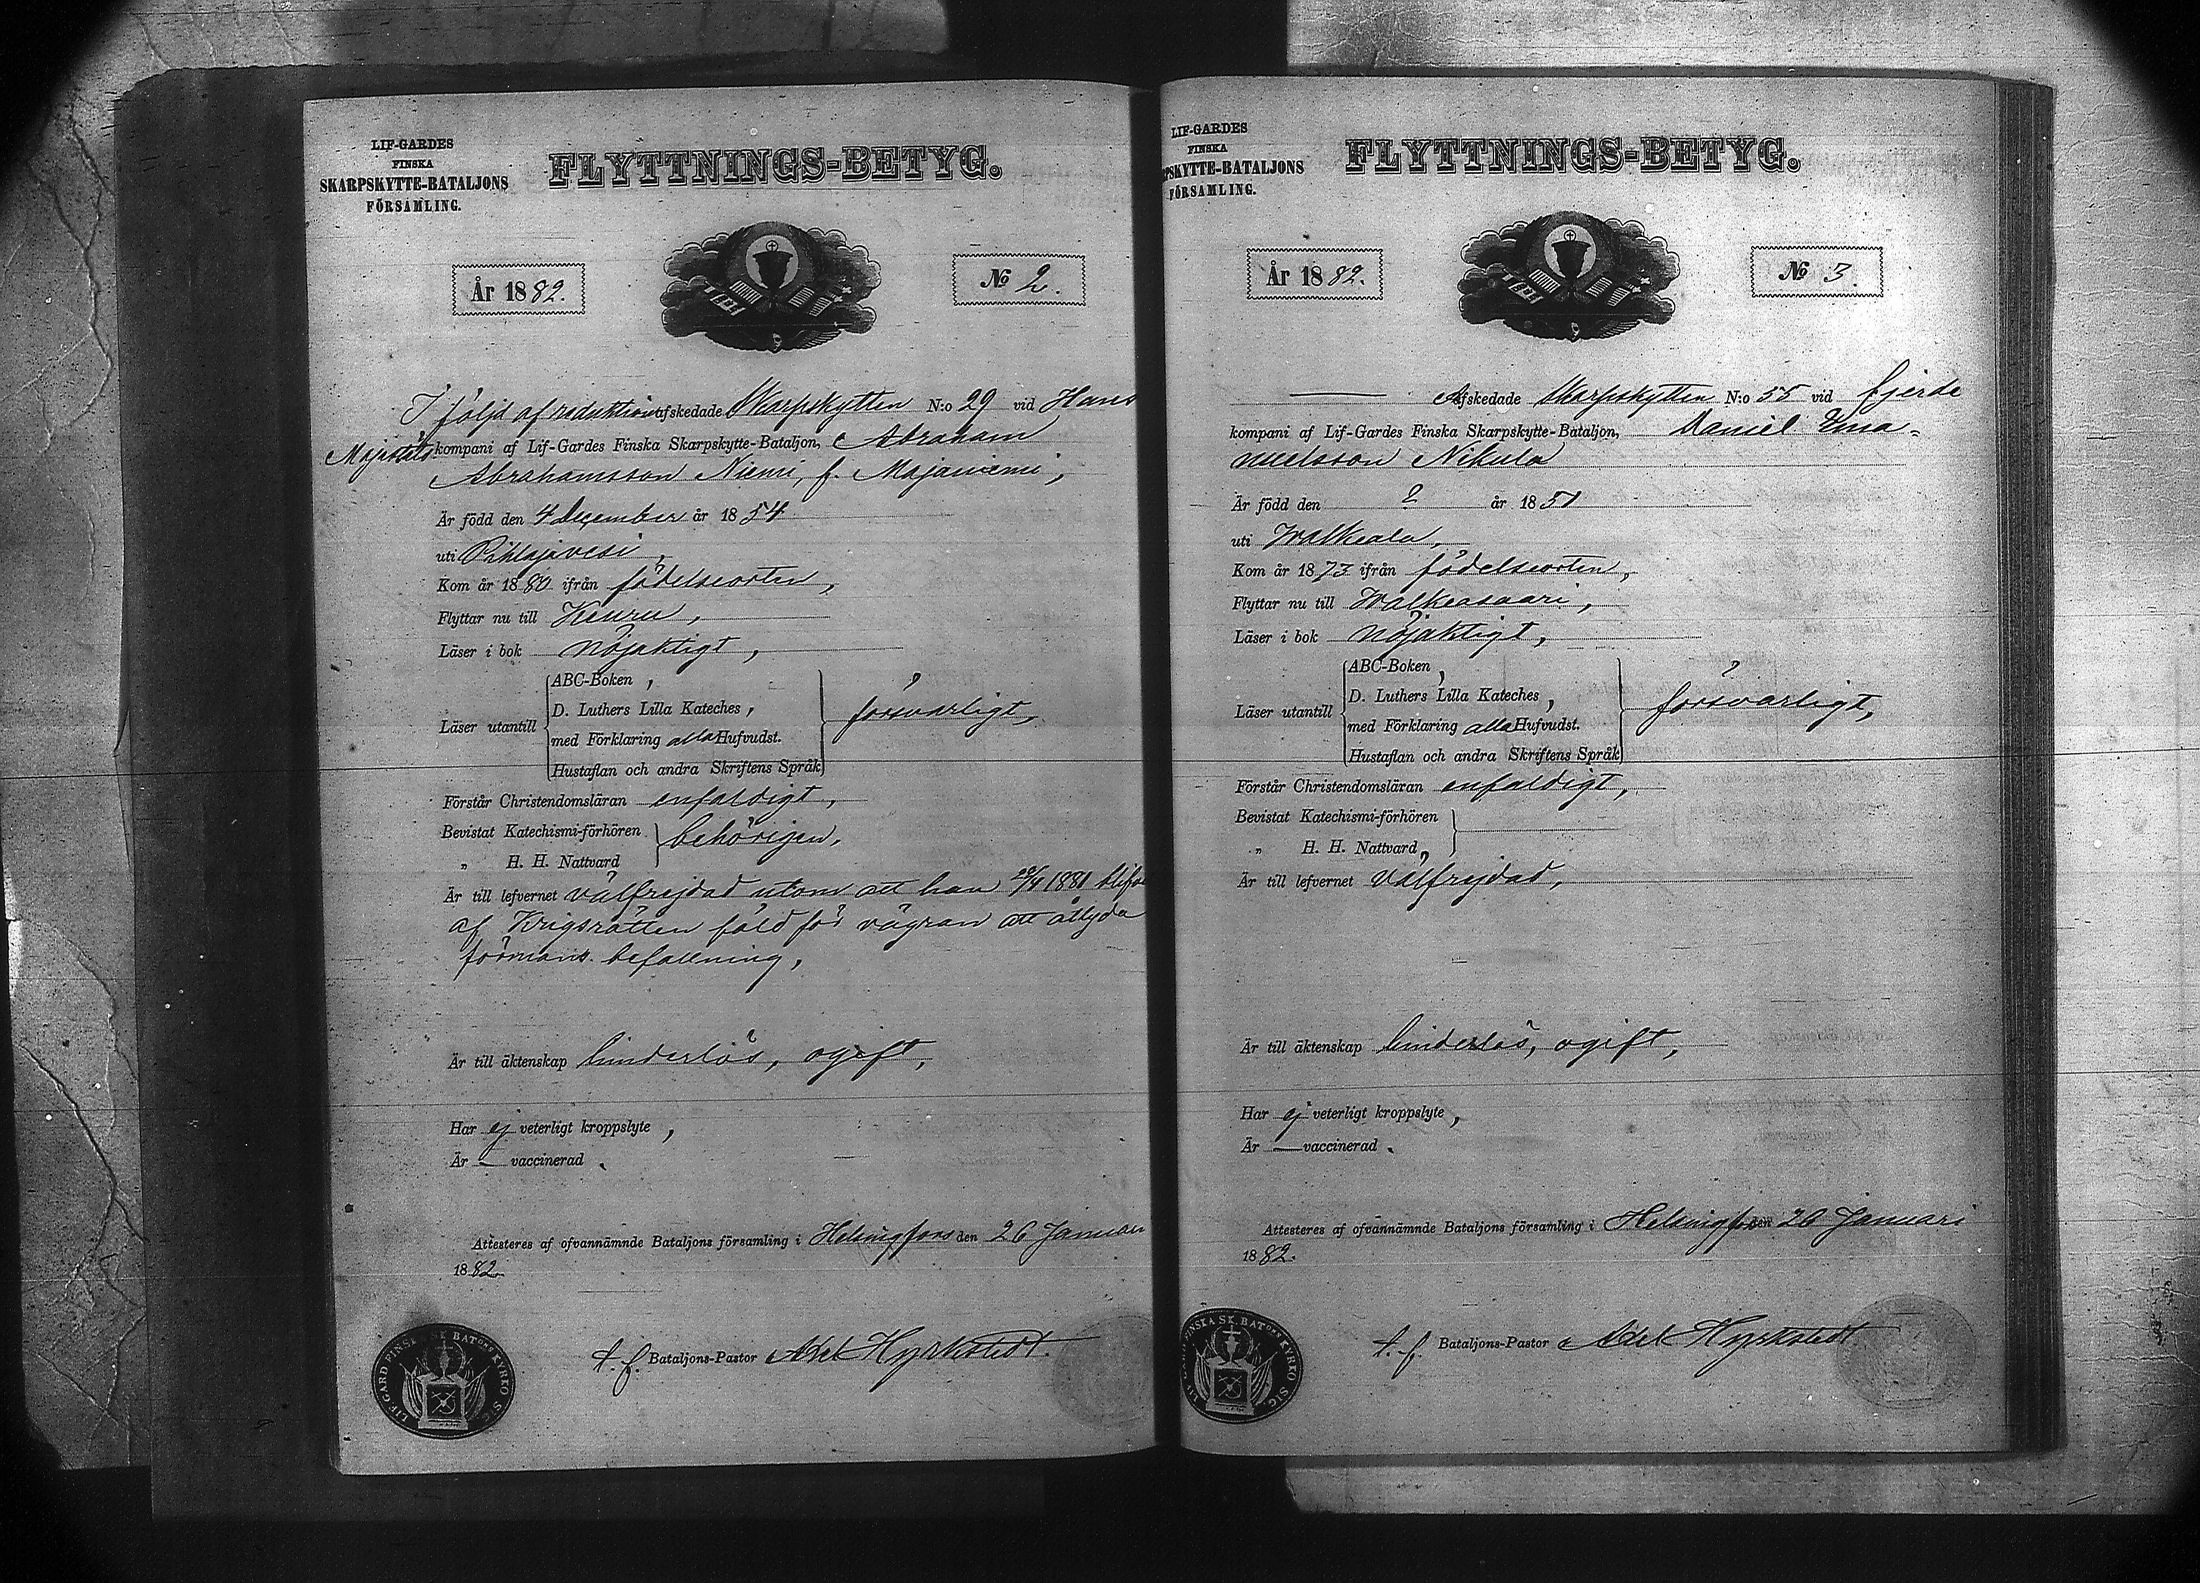 LIF-GARDES
FINSKA
SKARPSKYTTE-BATALJONS
FÖRSAMLING.
FLYTTNINGS-BETYG.
År 1882.
No 2.
I följd af reduktion afskedade Skarpskytten N:o 29 vid Hans
Majestäts kompani af Lif-Gardes Finska Skarpskytte-Bataljon, Abraham
Abrahamsson Niemi, f. Majaniemi,
Är född den 4 December år 1854
uti Pihlajavesi,
Kom år 1880 ifrån födelseorten,
Flyttar nu till Keuru,
Läser i bok nöjaktigt,
Läser utantill
ABC-Boken,
D. Luthers Lilla Kateches,
med Förklaring alla Hufvudst.
Hustaflan och andra Skriftens Språk
försvarligt,
Förstår Christendomsläran enfaldigt,
Bevistat Katechismi-förhören
„ H. H. Nattvard
behörigen,
Är till lefvernet välfrejdad utom att han /4 1881 blifvit
af Krigsrätten fäld för vägran att åtlyda
förmans befallning,
Är till äktenskap hinderlös, ogift,
Har ej veterligt kroppslyte,
Är — vaccinerad.
Attesteres af ofvannämnde Bataljons församling i Helsingfors den 26 Januari
1882.
t. f. Bataljons-Pastor Axel Hyrkstedt.
LIF-GARD FINSKA SK. BAT:ONS KYRKO SIG.
LIF-GARDES
FINSKA
PSKYTTE-BATALJONS
FÖRSAMLING.
FLYTTNINGS-BETYG.
År 1882.
No 3.
— Afskedade Skarpskytten N:o 55 vid fjerde
kompani af Lif-Gardes Finska Skarpskytte-Bataljon, Daniel Ema-
nuelsson Nikula
Är född den ? år 1851
uti Walkeala,
Kom år 1873 ifrån födelseorten,
Flyttar nu till Walkeasaari,
Läser i bok nöjaktigt,
Läser utantill
ABC-Boken,
D. Luthers Lilla Kateches,
med Förklaring alla Hufvudst.
Hustaflan och andra Skriftens Språk
försvarligt,
Förstår Christendomsläran enfaldigt,
Bevistat Katechismi-förhören
„ H. H. Nattvard,
Är till lefvernet välfrejdad,
Är till äktenskap hinderlös, ogift,
Har ej veterligt kroppslyte,
Är — vaccinerad.
Attesteres af ofvannämnde Bataljons församling i Helsingfors den 26 Januari
1882.
t. f. Bataljons-Pastor Axel Hyrkstedt.
FINSKA SK. BAT:ONS KYRKO SIG.